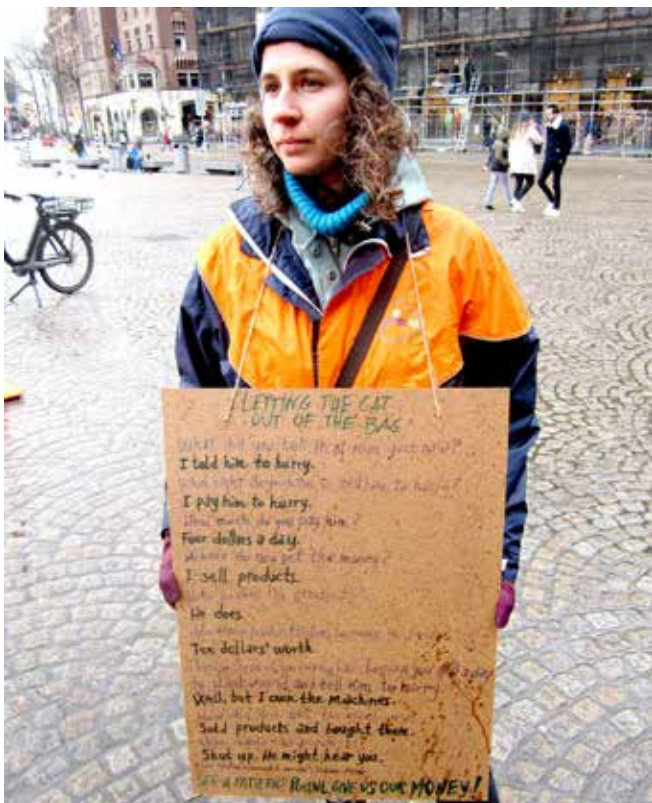 LETTING THE CAT
OUT OF THE BAG
What did you tell that man just now?
I told him to hurry.
What right do you have to tell him to hurry?
I pay him to hurry.
How much do you pay him?
Four dollars a day.
Where do you get the money?
I sell products.
Who makes the products?
He does.
Ten dollars' worth.
and tell him to hurry
Well, but I own the machines.
Sold products and bought them.
Shut up. He might hear you.
SEE A PATTERN? GIVE US OUR MONEY!